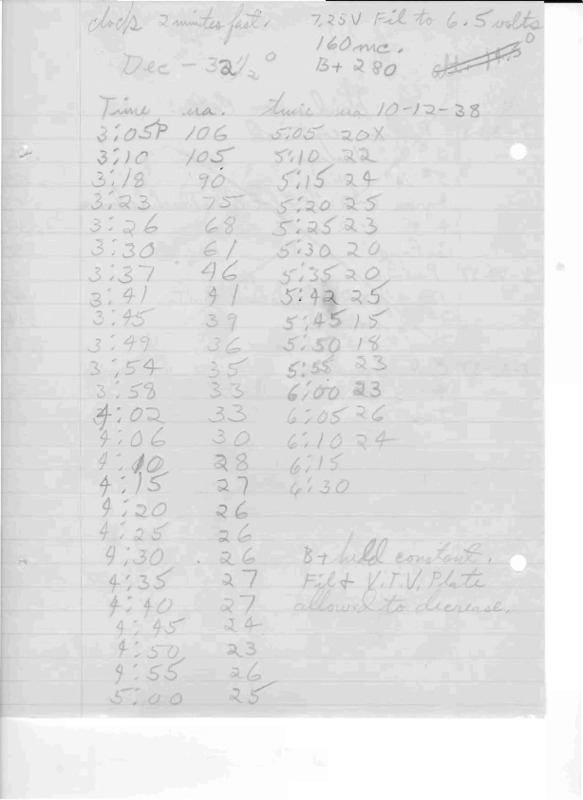 clock 2 minutes fast. 7.25V Fil to 6.5 volts
160 mc.
Dec - 32½° B+ 280
Time ua. time ua 10-12-38
3:05P 106 5:05 20X
3:10 105 5:10 22
3:18 90 5:15 24
3:23 75 5:20 25
3:26 68 5:25 23
3:30 61 5:30 20
3:37 46 5:35 20
3:41 41 5:42 25
3:45 39 5:45 15
3:49 36 5:50 18
3:54 35 5:55 23
3:58 33 6:00 23
4:02 33 6:05 26
4:06 30 6:10 24
4:10 28 6:15
4:15 27 6:30
4:20 26
4:25 26
4:30 26 B+ held constant.
4:35 27 Fil & V.T.V. Plate
4:40 27 allowed to decrease.
4:45 24
4:50 23
4:55 26
5:00 25